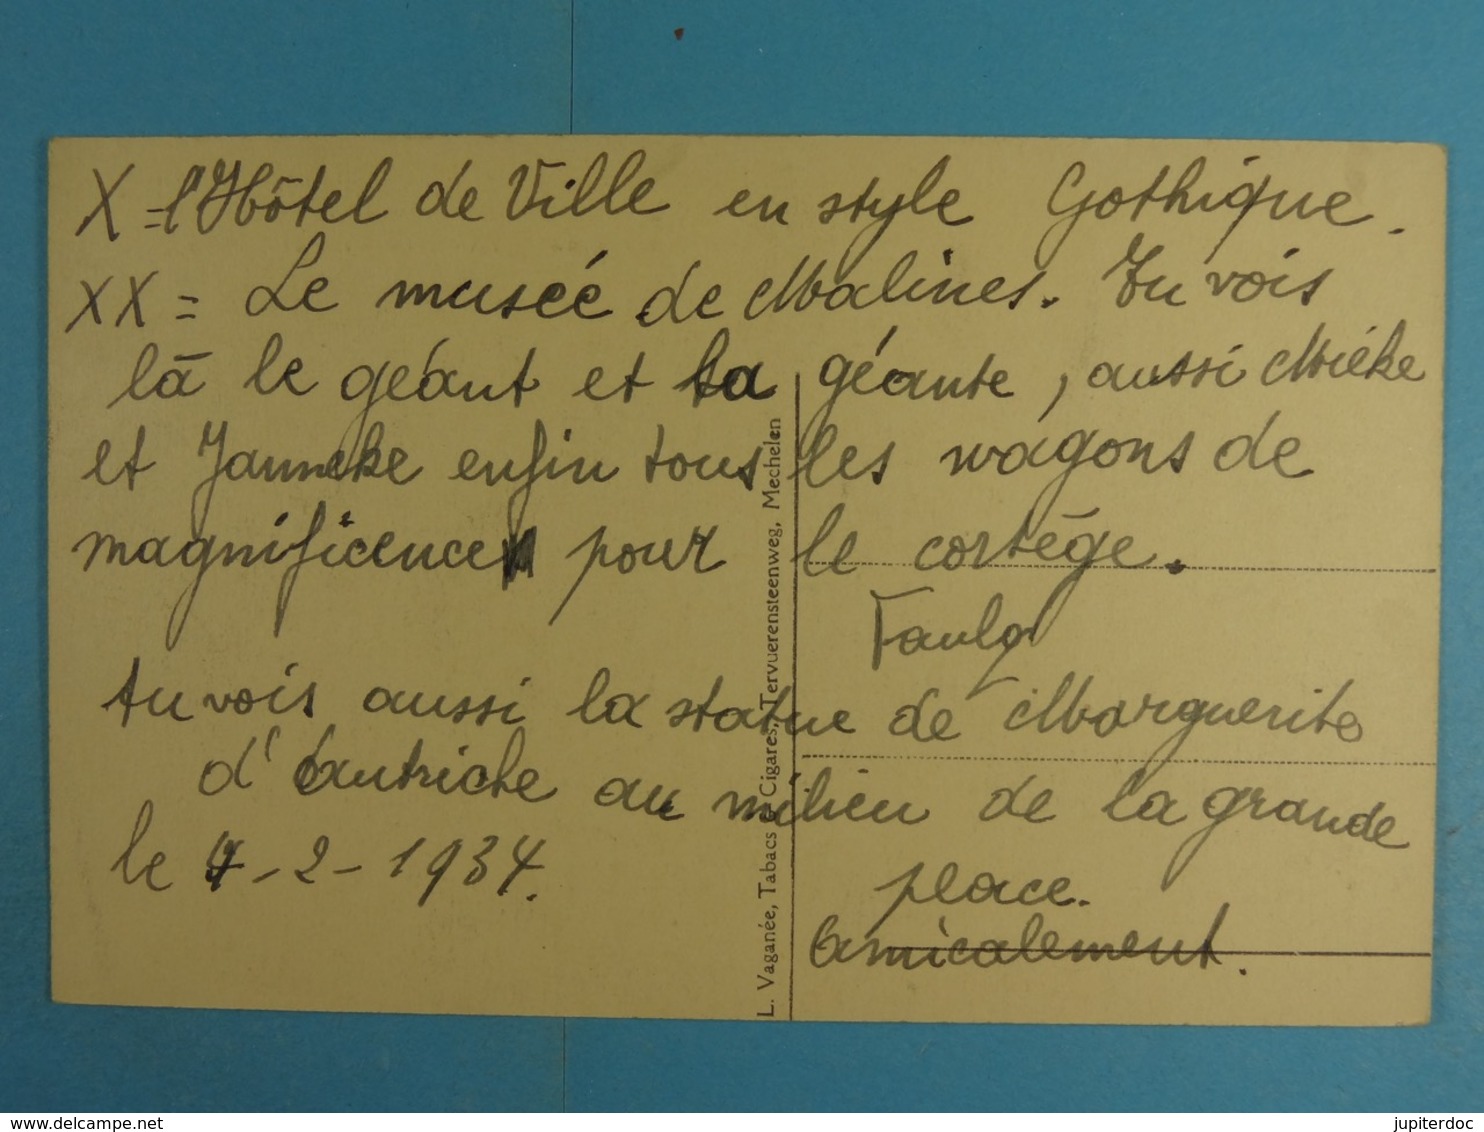 X = l'Hôtel de Ville en style Gothique.
XX = Le musée de Malines. Tu vois
là le géant et la géante, aussi Miéke
et Janneke enfin tous les wagons de
magnificence pour le cortège.
tu vois aussi la statue de Marguerite
d'Autriche au milieu de la grande
place.
le 4-2-1934.
Amicalement.
L. Vaganée, Tabacs & Cigares, Tervuerensteenweg, Mechelen
www.delcampe.net
jupiterdoc